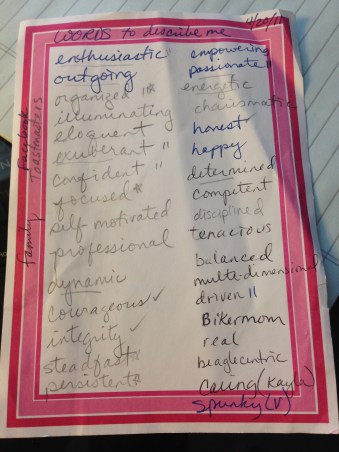 WORDS to describe me
4/20/11
enthusiastic "
outgoing
organized "*
illuminating
eloquent
exuberant "
confident "
focused *
self motivated
professional
dynamic
courageous ✓
integrity ✓
steadfast *
persistent *
empowering
passionate "
energetic
charismatic
honest
happy
determined
competent
disciplined
tenacious
balanced
multi-dimensional
driven "
Bikermom
real
beaglecentric
Caring (Kayla)
Spunky (V)
Family Facebook
Toastmasters